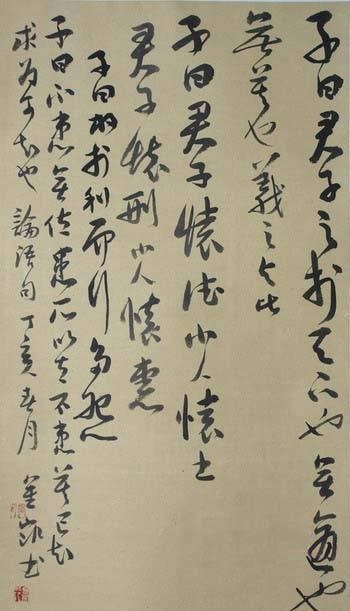 子曰君子之於天下也無適也
無莫也義之與比
子曰君子懷德小人懷土
君子懷刑小人懷惠
子曰放於利而行多怨
子曰不患無位患所以立不患莫己知
求為可知也 論語句 丁亥春月 凱书